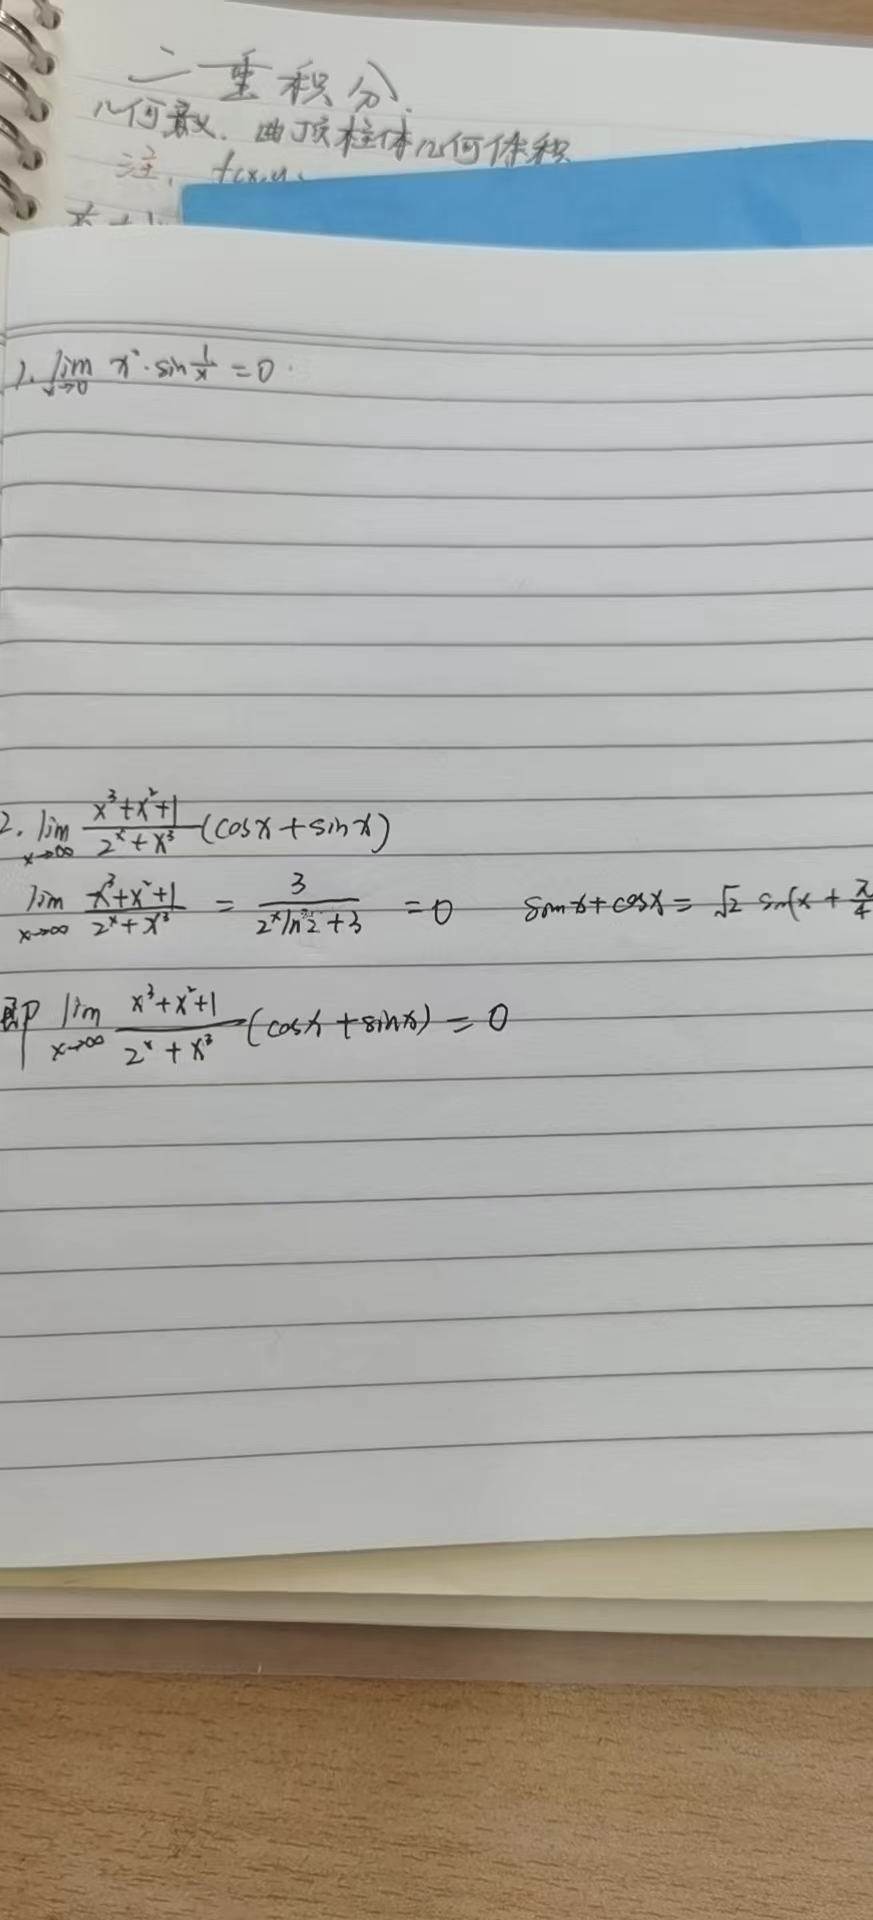 二重积分.
几何意义. 曲顶柱体几何体积
注. f(x,y)
1. lim x→0 x²·sin 1/x = 0.
2. lim x→∞ (x³+x²+1)/(2ˣ+x³) (cosx+sinx)
lim x→∞ (x³+x²+1)/(2ˣ+x³) = 3/(2ˣln³2+3) = 0 sinx+cosx = √2 sin(x+π/4
即 lim x→∞ (x³+x²+1)/(2ˣ+x³) (cosx+sinx) = 0